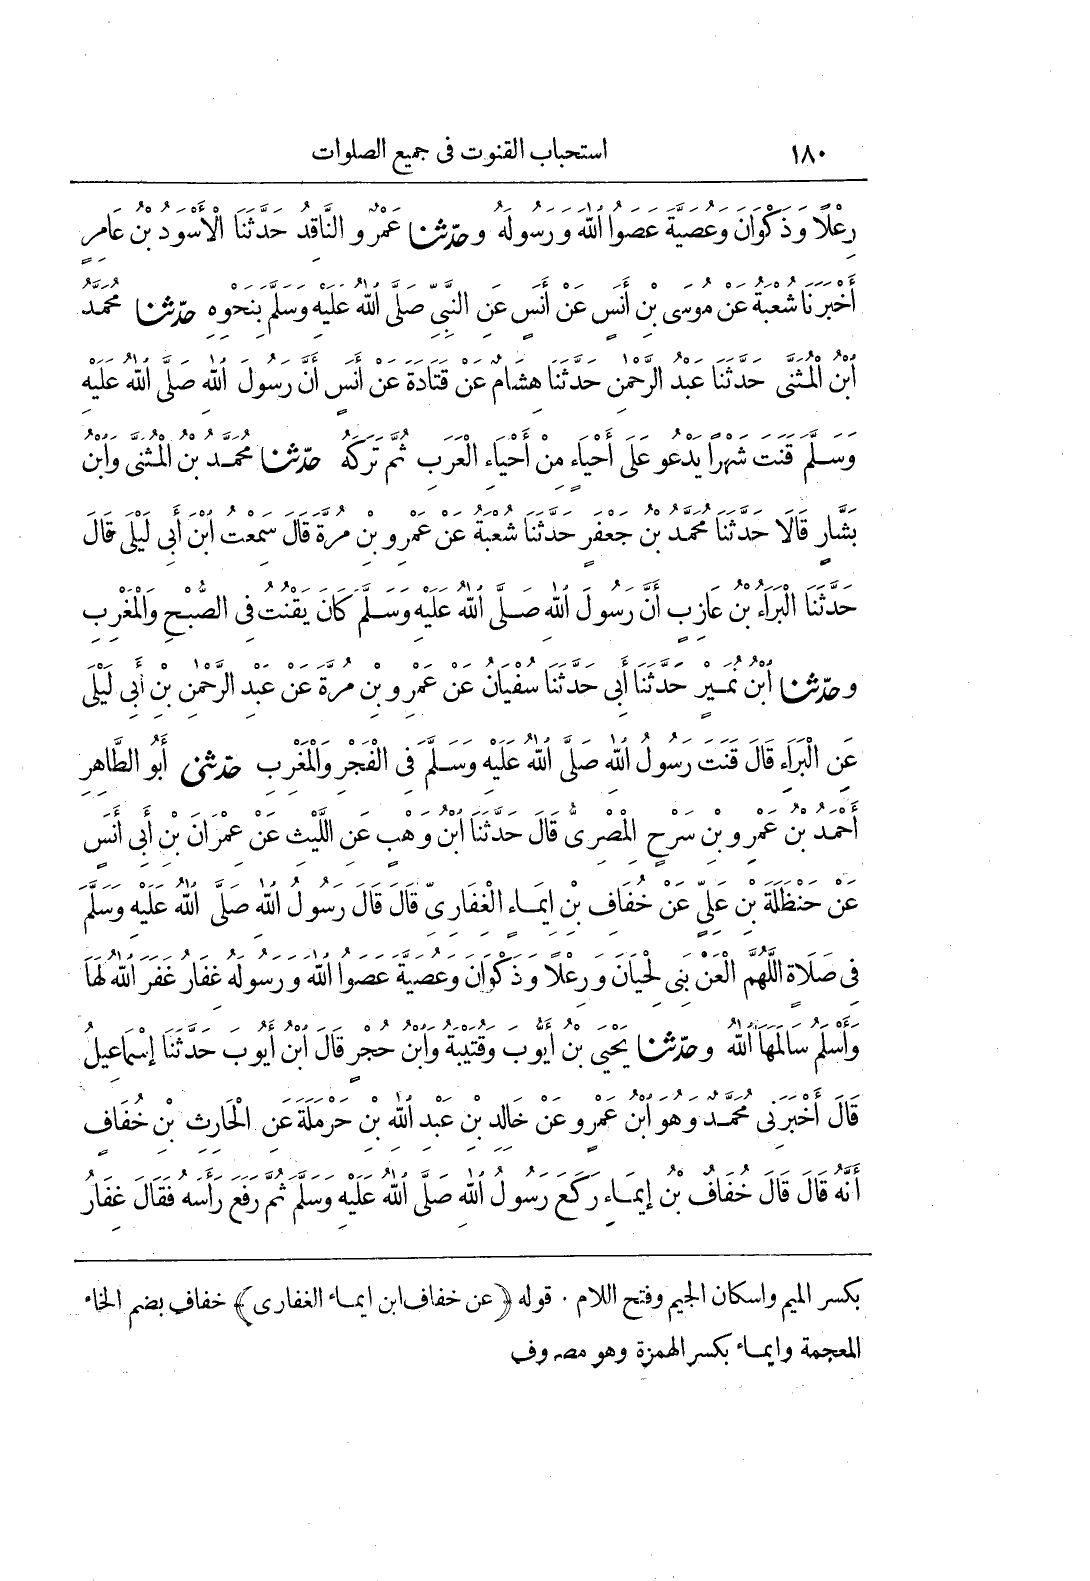 ١٨٠ استحباب القنوت فى جميع الصلوات
رِعْلًا وَذَكْوَانَ وَعُصَيَّةَ عَصَوُا اللهَ وَرَسُولَهُ وحدّثنا عَمْرٌو النَّاقِدُ حَدَّثَنَا الْأَسْوَدُ بْنُ عَامِرٍ
أَخْبَرَنَا شُعْبَةُ عَنْ مُوسَى بْنِ أَنَسٍ عَنْ أَنَسٍ عَنِ النَّبِيِّ صَلَّى اللهُ عَلَيْهِ وَسَلَّمَ بِنَحْوِهِ حدّثنا مُحَمَّدُ
ابْنُ الْمُثَنَّى حَدَّثَنَا عَبْدُ الرَّحْمٰنِ حَدَّثَنَا هِشَامٌ عَنْ قَتَادَةَ عَنْ أَنَسٍ أَنَّ رَسُولَ اللهِ صَلَّى اللهُ عَلَيْهِ
وَسَلَّمَ قَنَتَ شَهْرًا يَدْعُو عَلَى أَحْيَاءٍ مِنْ أَحْيَاءِ الْعَرَبِ ثُمَّ تَرَكَهُ حدّثنا مُحَمَّدُ بْنُ الْمُثَنَّى وَابْنُ
بَشَّارٍ قَالَا حَدَّثَنَا مُحَمَّدُ بْنُ جَعْفَرٍ حَدَّثَنَا شُعْبَةُ عَنْ عَمْرِو بْنِ مُرَّةَ قَالَ سَمِعْتُ ابْنَ أَبِى لَيْلَى قَالَ
حَدَّثَنَا الْبَرَاءُ بْنُ عَازِبٍ أَنَّ رَسُولَ اللهِ صَلَّى اللهُ عَلَيْهِ وَسَلَّمَ كَانَ يَقْنُتُ فِى الصُّبْحِ وَالْمَغْرِبِ
وحدّثنا ابْنُ نُمَيْرٍ حَدَّثَنَا أَبِى حَدَّثَنَا سُفْيَانُ عَنْ عَمْرِو بْنِ مُرَّةَ عَنْ عَبْدِ الرَّحْمٰنِ بْنِ أَبِى لَيْلَى
عَنِ الْبَرَاءِ قَالَ قَنَتَ رَسُولُ اللهِ صَلَّى اللهُ عَلَيْهِ وَسَلَّمَ فِى الْفَجْرِ وَالْمَغْرِبِ حدّثنى أَبُو الطَّاهِرِ
أَحْمَدُ بْنُ عَمْرِو بْنِ سَرْحٍ الْمِصْرِىُّ قَالَ حَدَّثَنَا ابْنُ وَهْبٍ عَنِ اللَّيْثِ عَنْ عِمْرَانَ بْنِ أَبِى أَنَسٍ
عَنْ حَنْظَلَةَ بْنِ عَلِيٍّ عَنْ خُفَافِ بْنِ إِيمَاءٍ الْغِفَارِىِّ قَالَ قَالَ رَسُولُ اللهِ صَلَّى اللهُ عَلَيْهِ وَسَلَّمَ
فِى صَلَاةٍ اللَّهُمَّ الْعَنْ بَنِى لِحْيَانَ وَرِعْلًا وَذَكْوَانَ وَعُصَيَّةَ عَصَوُا اللهَ وَرَسُولَهُ غِفَارُ غَفَرَ اللهُ لَهَا
وَأَسْلَمُ سَالَمَهَا اللهُ وحدّثنا يَحْيَى بْنُ أَيُّوبَ وَقُتَيْبَةُ وَابْنُ حُجْرٍ قَالَ ابْنُ أَيُّوبَ حَدَّثَنَا إِسْمَاعِيلُ
قَالَ أَخْبَرَنِى مُحَمَّدٌ وَهُوَ ابْنُ عَمْرٍو عَنْ خَالِدِ بْنِ عَبْدِ اللهِ بْنِ حَرْمَلَةَ عَنِ الْحَارِثِ بْنِ خُفَافٍ
أَنَّهُ قَالَ قَالَ خُفَافُ بْنُ إِيمَاءٍ رَكَعَ رَسُولُ اللهِ صَلَّى اللهُ عَلَيْهِ وَسَلَّمَ ثُمَّ رَفَعَ رَأْسَهُ فَقَالَ غِفَارُ
بكسر الميم واسكان الجيم وفتح اللام . قوله ﴿عن خفاف ابن ايماء الغفارى﴾ خفاف بضم الخاء
المعجمة وايماء بكسر الهمزة وهو مصروف